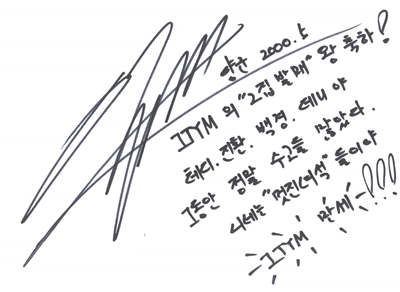 양군 2000. 5
1TYM 의 "2집 발매" 왕 축하!
테디. 진환. 백경. 대니 야
그동안 정말 수고들 많았다.
너네는 "멋진녀석" 들이야
1TYM 만세!!!